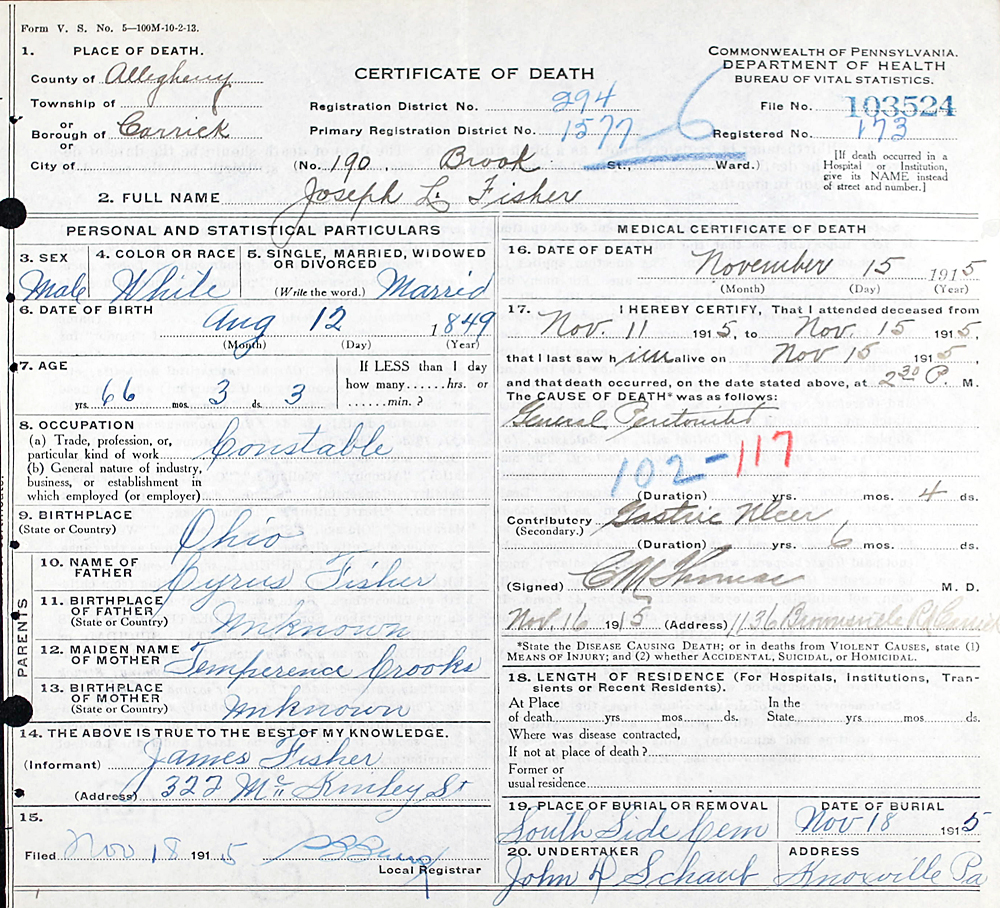 Form V. S. No. 5—100M-10-2-13.
1. PLACE OF DEATH.
County of Allegheny
Township of
or
Borough of Carrick
or
City of
CERTIFICATE OF DEATH
Registration District No. 294
Primary Registration District No. 1577
6
(No. 190, Brook St., Ward.)
COMMONWEALTH OF PENNSYLVANIA.
DEPARTMENT OF HEALTH
BUREAU OF VITAL STATISTICS.
File No. 103524
Registered No. 173
[If death occurred in a
Hospital or Institution,
give its NAME instead
of street and number.]
2. FULL NAME Joseph L. Fisher
PERSONAL AND STATISTICAL PARTICULARS
3. SEX
Male
4. COLOR OR RACE
White
5. SINGLE, MARRIED, WIDOWED
OR DIVORCED
(Write the word.) Married
6. DATE OF BIRTH
Aug 12 1849
(Month) (Day) (Year)
7. AGE
yrs. 66 mos. 3 ds. 3
If LESS than 1 day
how many......hrs. or
......min. ?
8. OCCUPATION
(a) Trade, profession, or,
particular kind of work Constable
(b) General nature of industry,
business, or establishment in
which employed (or employer)
9. BIRTHPLACE
(State or Country) Ohio
PARENTS
10. NAME OF
FATHER Cyrus Fisher
11. BIRTHPLACE
OF FATHER
(State or Country) Unknown
12. MAIDEN NAME
OF MOTHER Temperence Crooks
13. BIRTHPLACE
OF MOTHER
(State or Country) Unknown
14. THE ABOVE IS TRUE TO THE BEST OF MY KNOWLEDGE.
(Informant) James Fisher
(Address) 322 McKinley St
15.
Filed Nov 18 1915
Local Registrar
MEDICAL CERTIFICATE OF DEATH
16. DATE OF DEATH
November 15 1915
(Month) (Day) (Year)
17. I HEREBY CERTIFY, That I attended deceased from
Nov. 11 1915, to Nov. 15 1915,
that I last saw him alive on Nov 15 1915,
and that death occurred, on the date stated above, at 2 30 P. M.
The CAUSE OF DEATH* was as follows:
General Peritonitis
102-117
(Duration) yrs. mos. 4 ds.
Contributory Gastric Ulcer
(Secondary.)
(Duration) yrs. 6 mos. ds.
(Signed) C M Thomas M. D.
Nov. 16 1915 (Address) 1136 Brownsville Rd Carrick
*State the DISEASE CAUSING DEATH; or in deaths from VIOLENT CAUSES, state (1)
MEANS OF INJURY; and (2) whether ACCIDENTAL, SUICIDAL, or HOMICIDAL.
18. LENGTH OF RESIDENCE (For Hospitals, Institutions, Tran-
sients or Recent Residents).
At Place
of death......yrs......mos......ds.
In the
State......yrs......mos......ds.
Where was disease contracted,
If not at place of death?
Former or
usual residence
19. PLACE OF BURIAL OR REMOVAL
South Side Cem
DATE OF BURIAL
Nov 18 1915
20. UNDERTAKER
John D Schaub
ADDRESS
Knoxville Pa